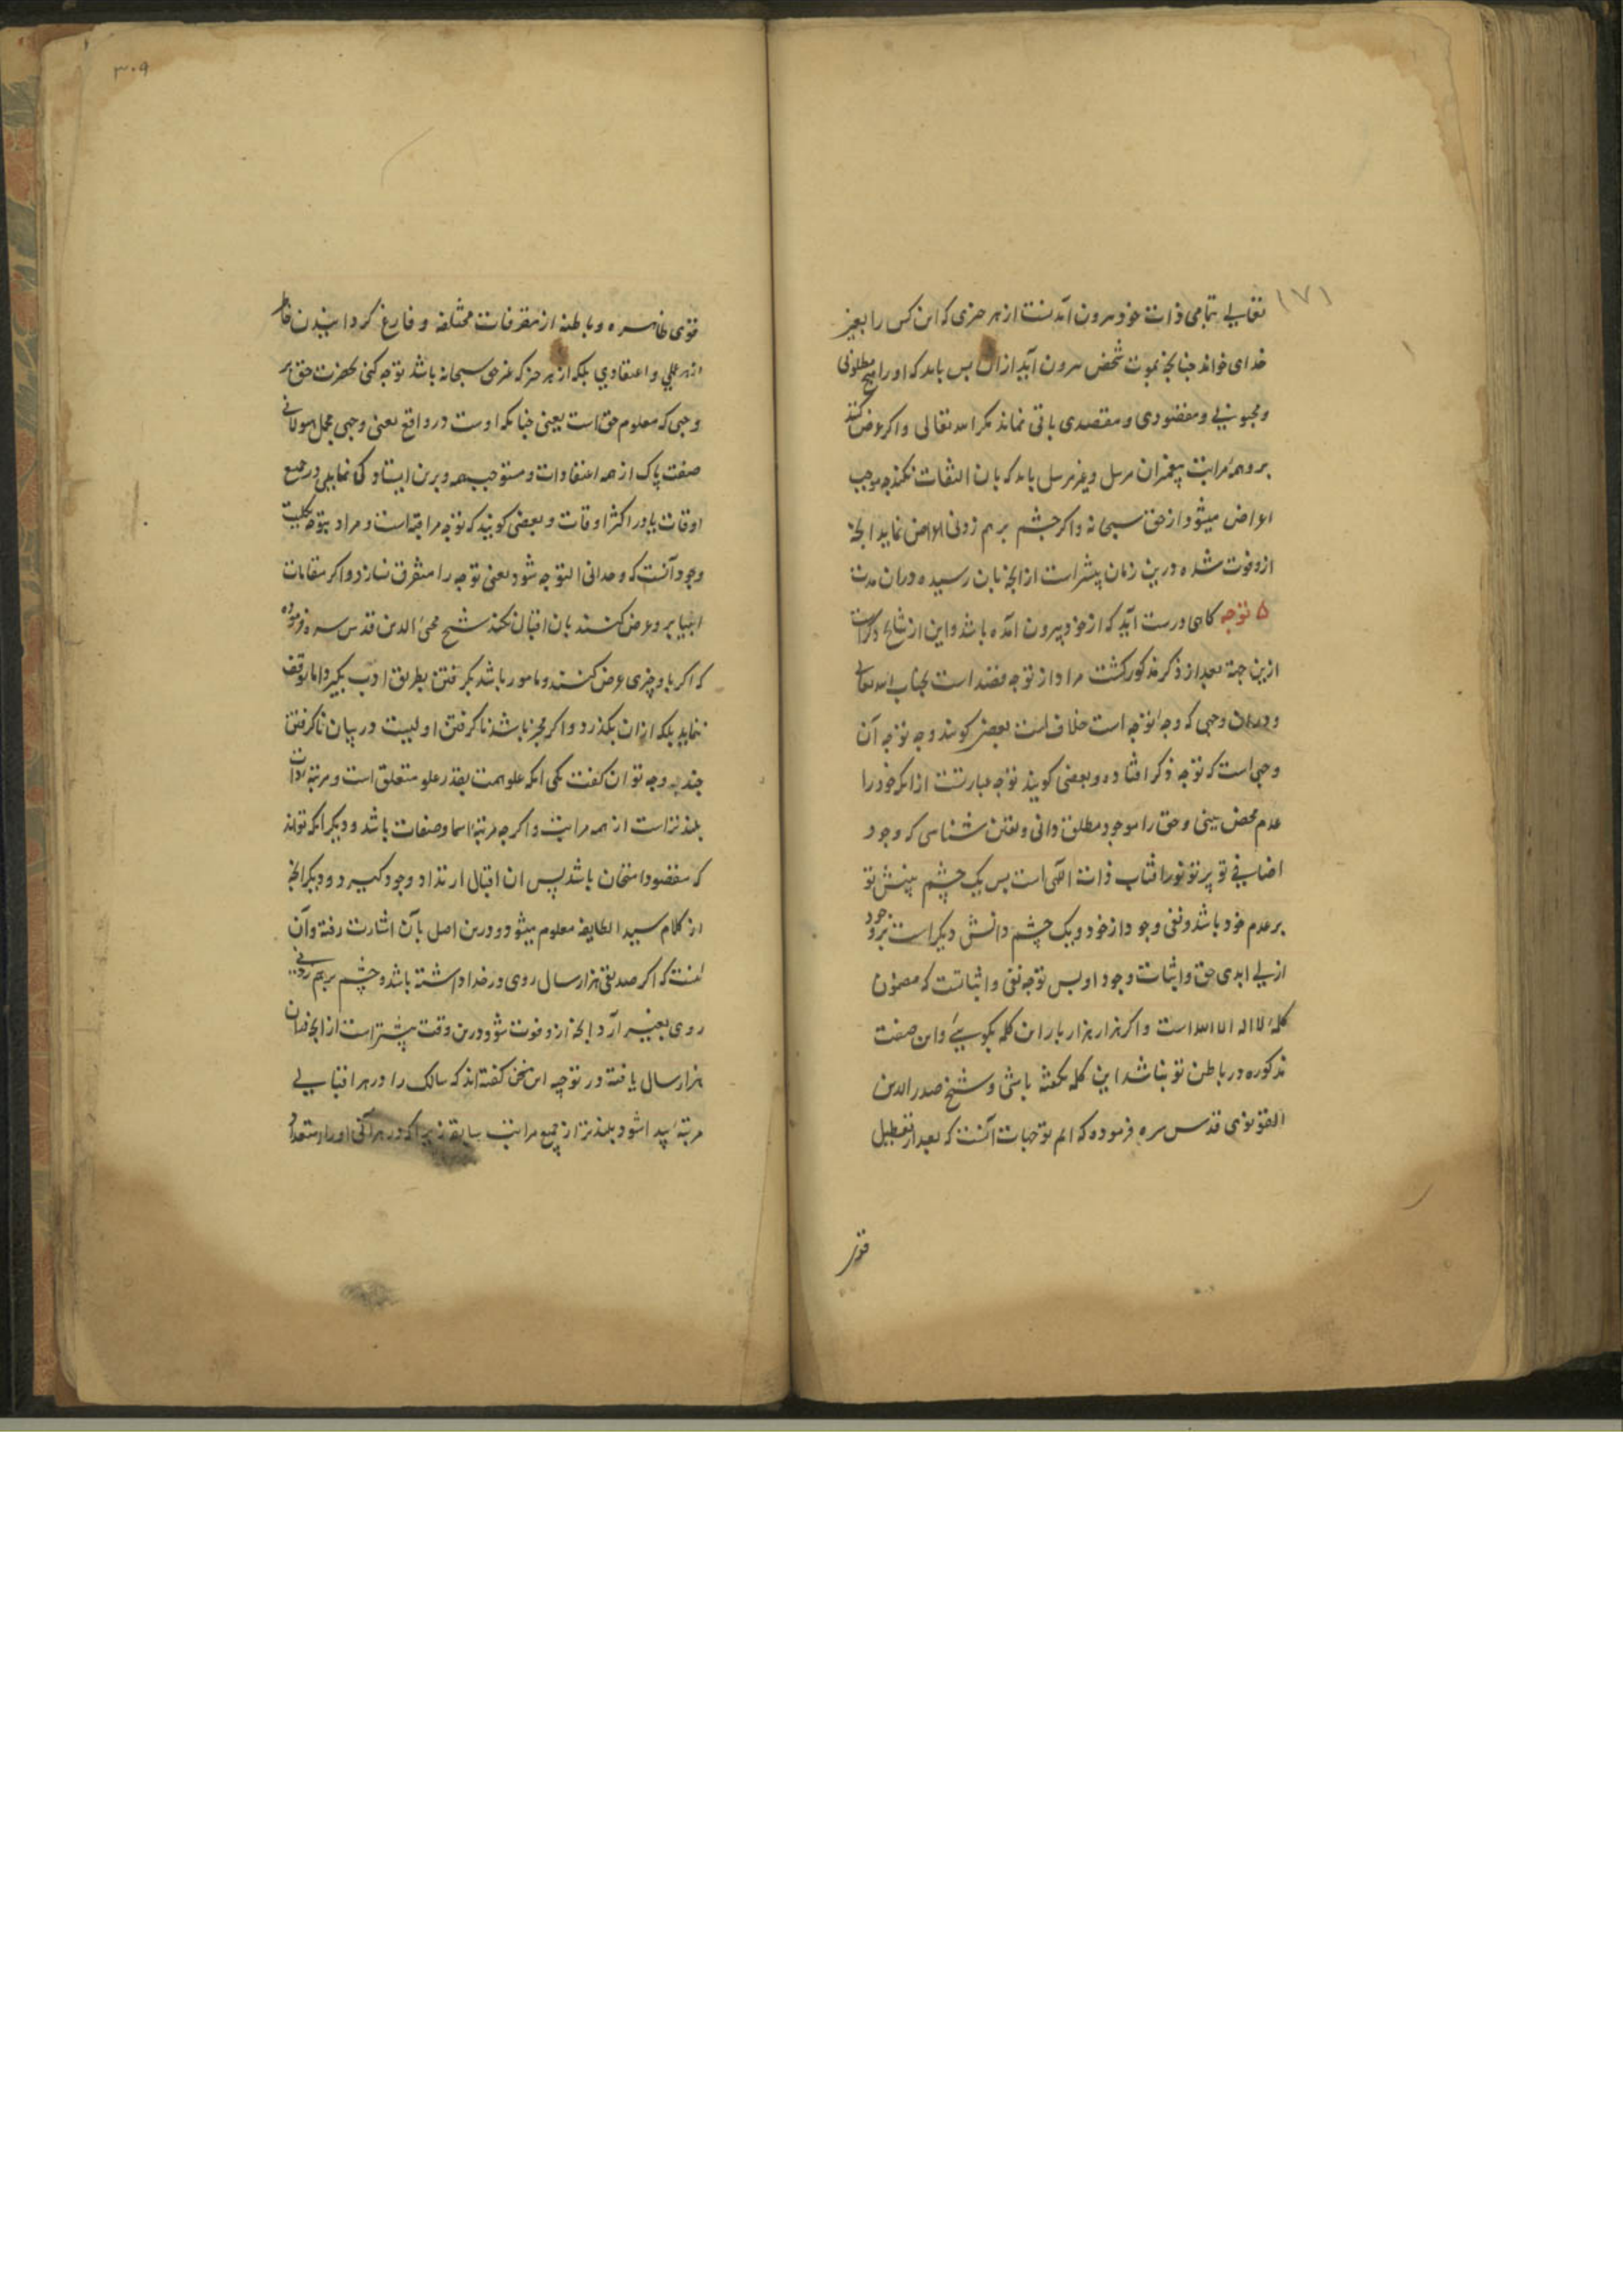 (۷۱
تعالی بتمامی ذات خود بیرون آمدنست از هر چیزی که این کس را بغیر
خدای خواند چنانچه بموت شخص بیرون آید ازان پس باید که او را هیچ مطلوبی
و محبوبی و مقصودی و مقصدی باقی نماند مکر الله تعالی و اکر عرض کنند
برو همه مراتب پیغمبران مرسل و غیر مرسل باید که بان التفات نکند چه موجب
اعراض میشود از حق سبحانه و اکر چشم بر هم زدنی اعراض نماید انچه
ازو فوت شده درین زمان بیشتر است از انچه بان رسیده دران مدت
۵ توجه کاهی درست آید که از خود بیرون آمده باشد و این از نتایج ذکرست
ازین جهة بعد از ذکر مذکور کشت مراد از توجه قصد است بجناب الله تعالی
و دران وجهی که وجه توجه است خلاف است بعضی کویند وجه توجه آن
وجهی است که توجه ذکر افتاده و بعضی کویند توجه عبارتست از انکه خود را
عدم محض بینی و حق را موجود مطلق دانی و یقین شناسی که وجود
اضافی تو پرتو نور افتاب ذات الهی است پس یک چشم بینش تو
بر عدم خود باشد و نفی وجود از خود و یک چشم دانش دیکر است بر وجود
ازلی ابدی حق و اثبات وجود او پس توجه نفی و اثباتست که مضمون
کلمهٔ لا اله الا الله است و اکر هزار هزار بار این کلمه بکویی و این صفت
مذکوره در باطن تو نباشد این کلمه نکفته باشی و شیخ صدر الدین
القونوی قدس سره فرموده که اتم توجهات آنست که بعد از تعطیل
قوی
۳۰۹
قوی ظاهره و باطنه از تصرفات مختلفه و فارغ کردانیدن خاطر
از هر علمی و اعتقادی بلکه از هر چیز که غیر حق سبحانه باشد توجه کنی بحضرت حق بر
وجهی که معلوم حق است یعنی چنانکه اوست در واقع یعنی وجهی مجمل هیولانی
صفت پاک از همه اعتقادات و مستوجب همه و برین ایستادکی نمایی در جمیع
اوقات یا در اکثر اوقات و بعضی کویند که توجه مراقبه است و مراد بتوجه کلیت
وجود آنست که وحدانی التوجه شود یعنی توجه را متفرق نسازد و اکر مقامات
انبیا برو عرض کنند بان اقبال نکند شیخ محیی الدین قدس سره فرموده
که اکر باو چیزی عرض کنند و مامور باشد بکرفتن بطریق ادب بکیرد اما توقف
ننماید بلکه ازان بکذرد و اکر مخیر باشد ناکرفتن اولیست در بیان ناکرفتن
چند وجه توان کفت یکی انکه علو همت بقدر علو متعلق است و مرتبه ذات
بلندتر است از همه مراتب و اکر چه مرتبه اسما و صفات باشد و دیکر انکه تواند
که مقصود امتحان باشد پس ان اقبال ارتداد وجود کیرد و دیکر انچه
از کلام سید الطایفه معلوم میشود و درین اصل بآن اشارت رفته و آن
آنست که اکر صدیقی هزار سال روی در خدا داشته باشد و چشم بر هم زدنی
روی بغیر آرد انچه ازو فوت شود درین وقت بیشتر است از انچه دران
هزار سال یافته در توجیه این سخن کفته اند که سالک را در هر اقبالی
مرتبه پیدا شود بلندتر از جمیع مراتب سابقه زیرا که در هر آنی او را استعداد